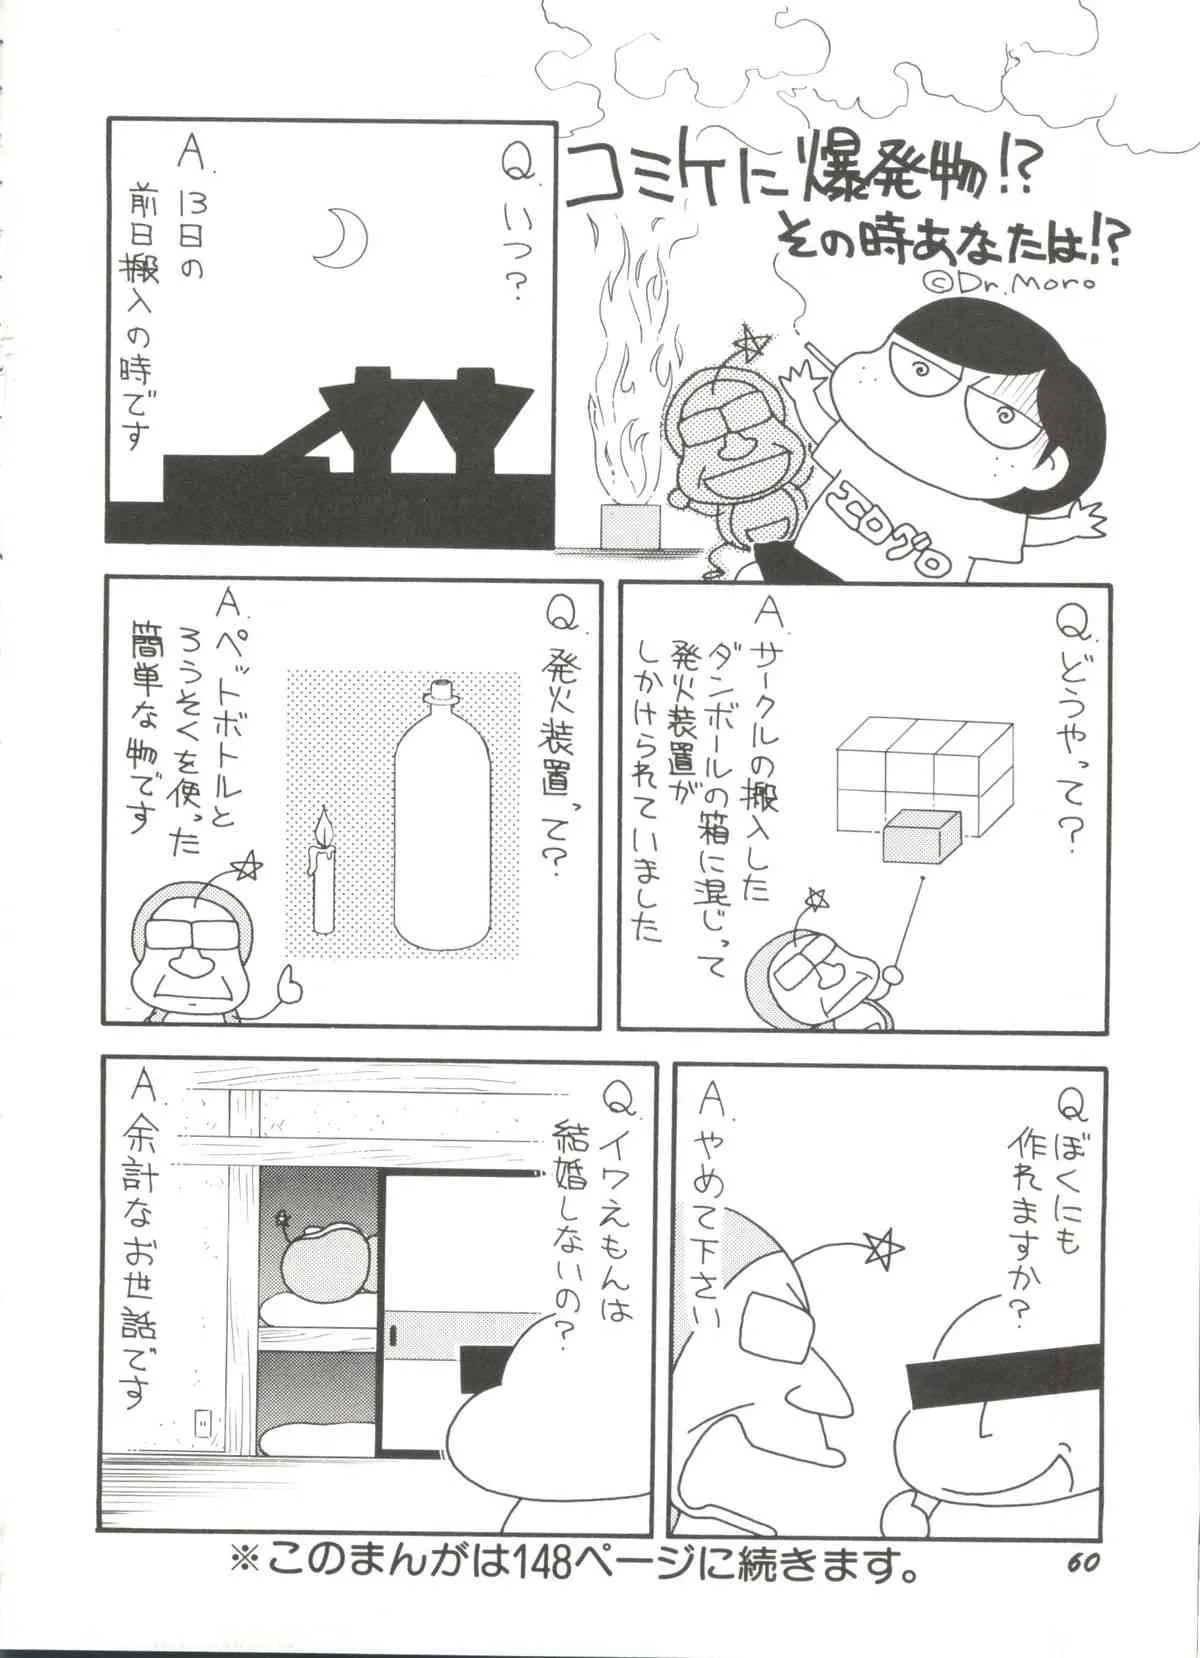 コミケに爆発物!?
その時あなたは!?
©Dr.Moro
エログロ
Q.いつ?
A.13日の
前日搬入の時です
Q.どうやって?
A.サークルの搬入した
ダンボールの箱に混じって
発火装置が
しかけられていました
Q.発火装置って?
A.ペットボトルと
ろうそくを使った
簡単な物です
Q.ぼくにも
作れますか?
A.やめて下さい
Q.イワえもんは
結婚しないの?
A.余計なお世話です
※このまんがは148ページに続きます。
60